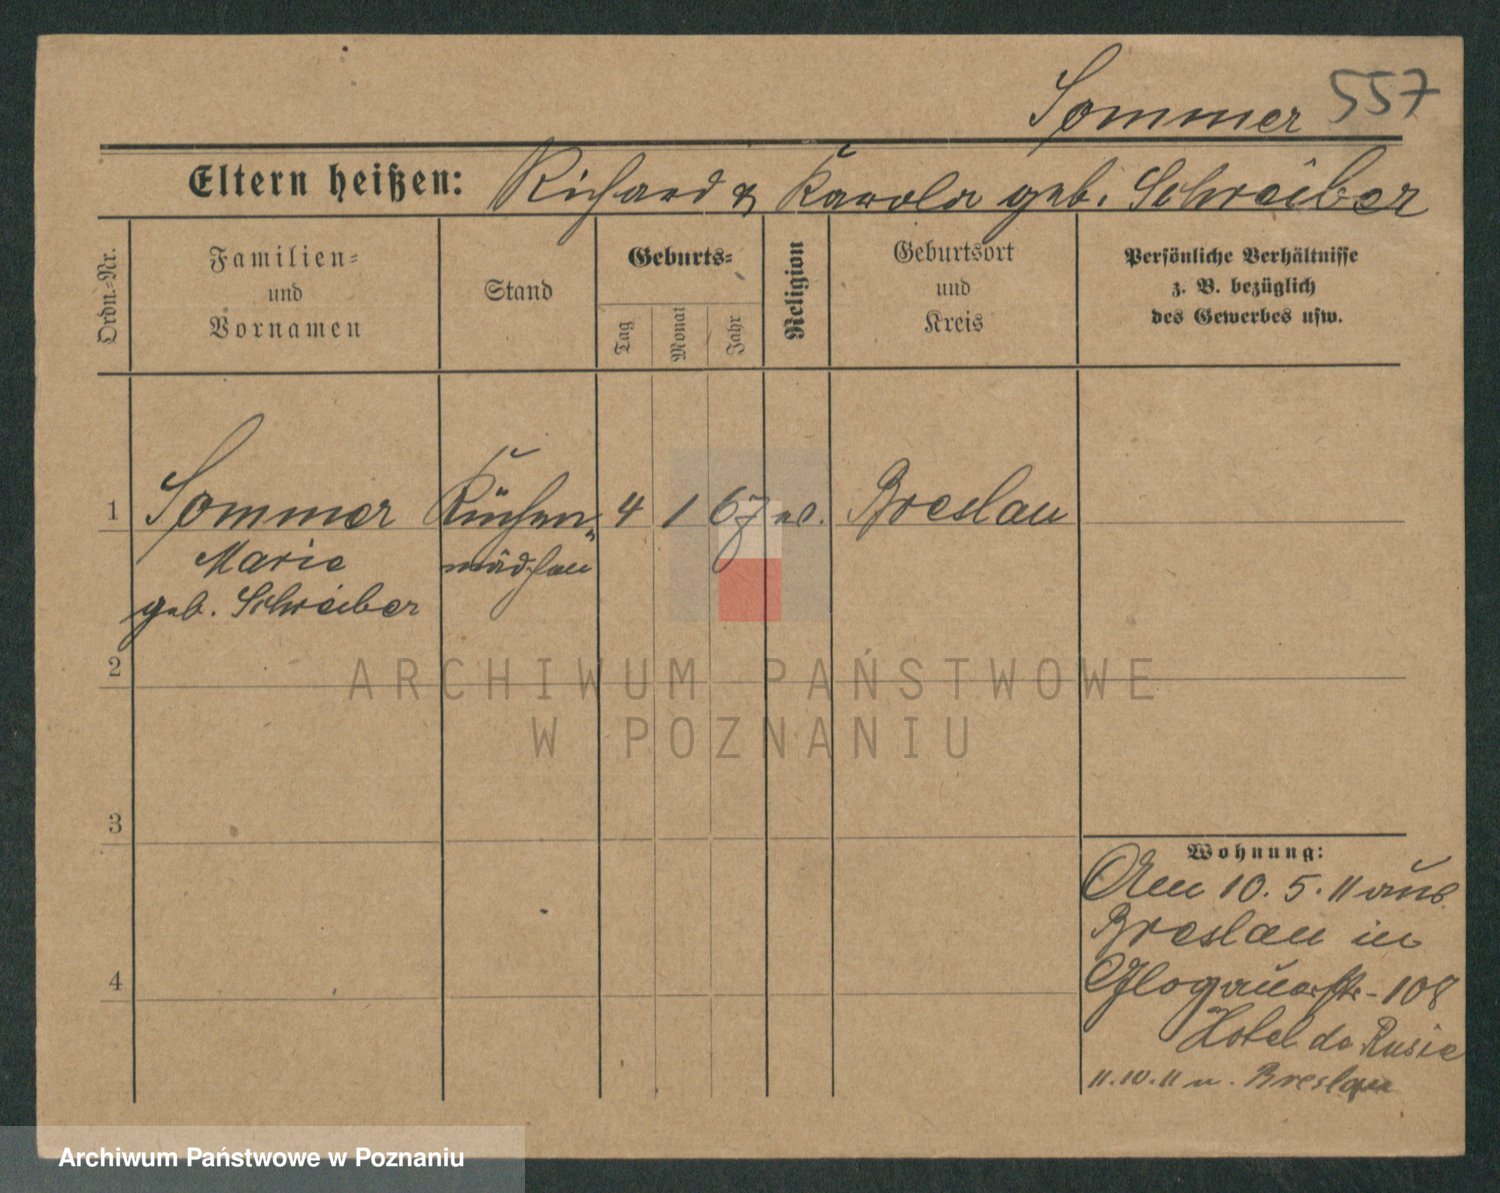 Sommer 557
Eltern heißen: Richard & Karola geb. Schreiber
Ordn.-Nr.
Familien-
und
Vornamen
Stand
Geburts-
Tag
Monat
Jahr
Religion
Geburtsort
und
Kreis
Persönliche Verhältnisse
z. B. bezüglich
des Gewerbes usw.
1 Sommer Küchen- 4 1 67 Breslau
Marie mädchen
geb. Schreiber
2
ARCHIWUM PAŃSTWOWE
W POZNANIU
3
Wohnung:
10. 5. 11 aus
Breslau in
Glogauerstr. 108
4
Hotel de Rusie
11.10.11 n. Breslau
Archiwum Państwowe w Poznaniu